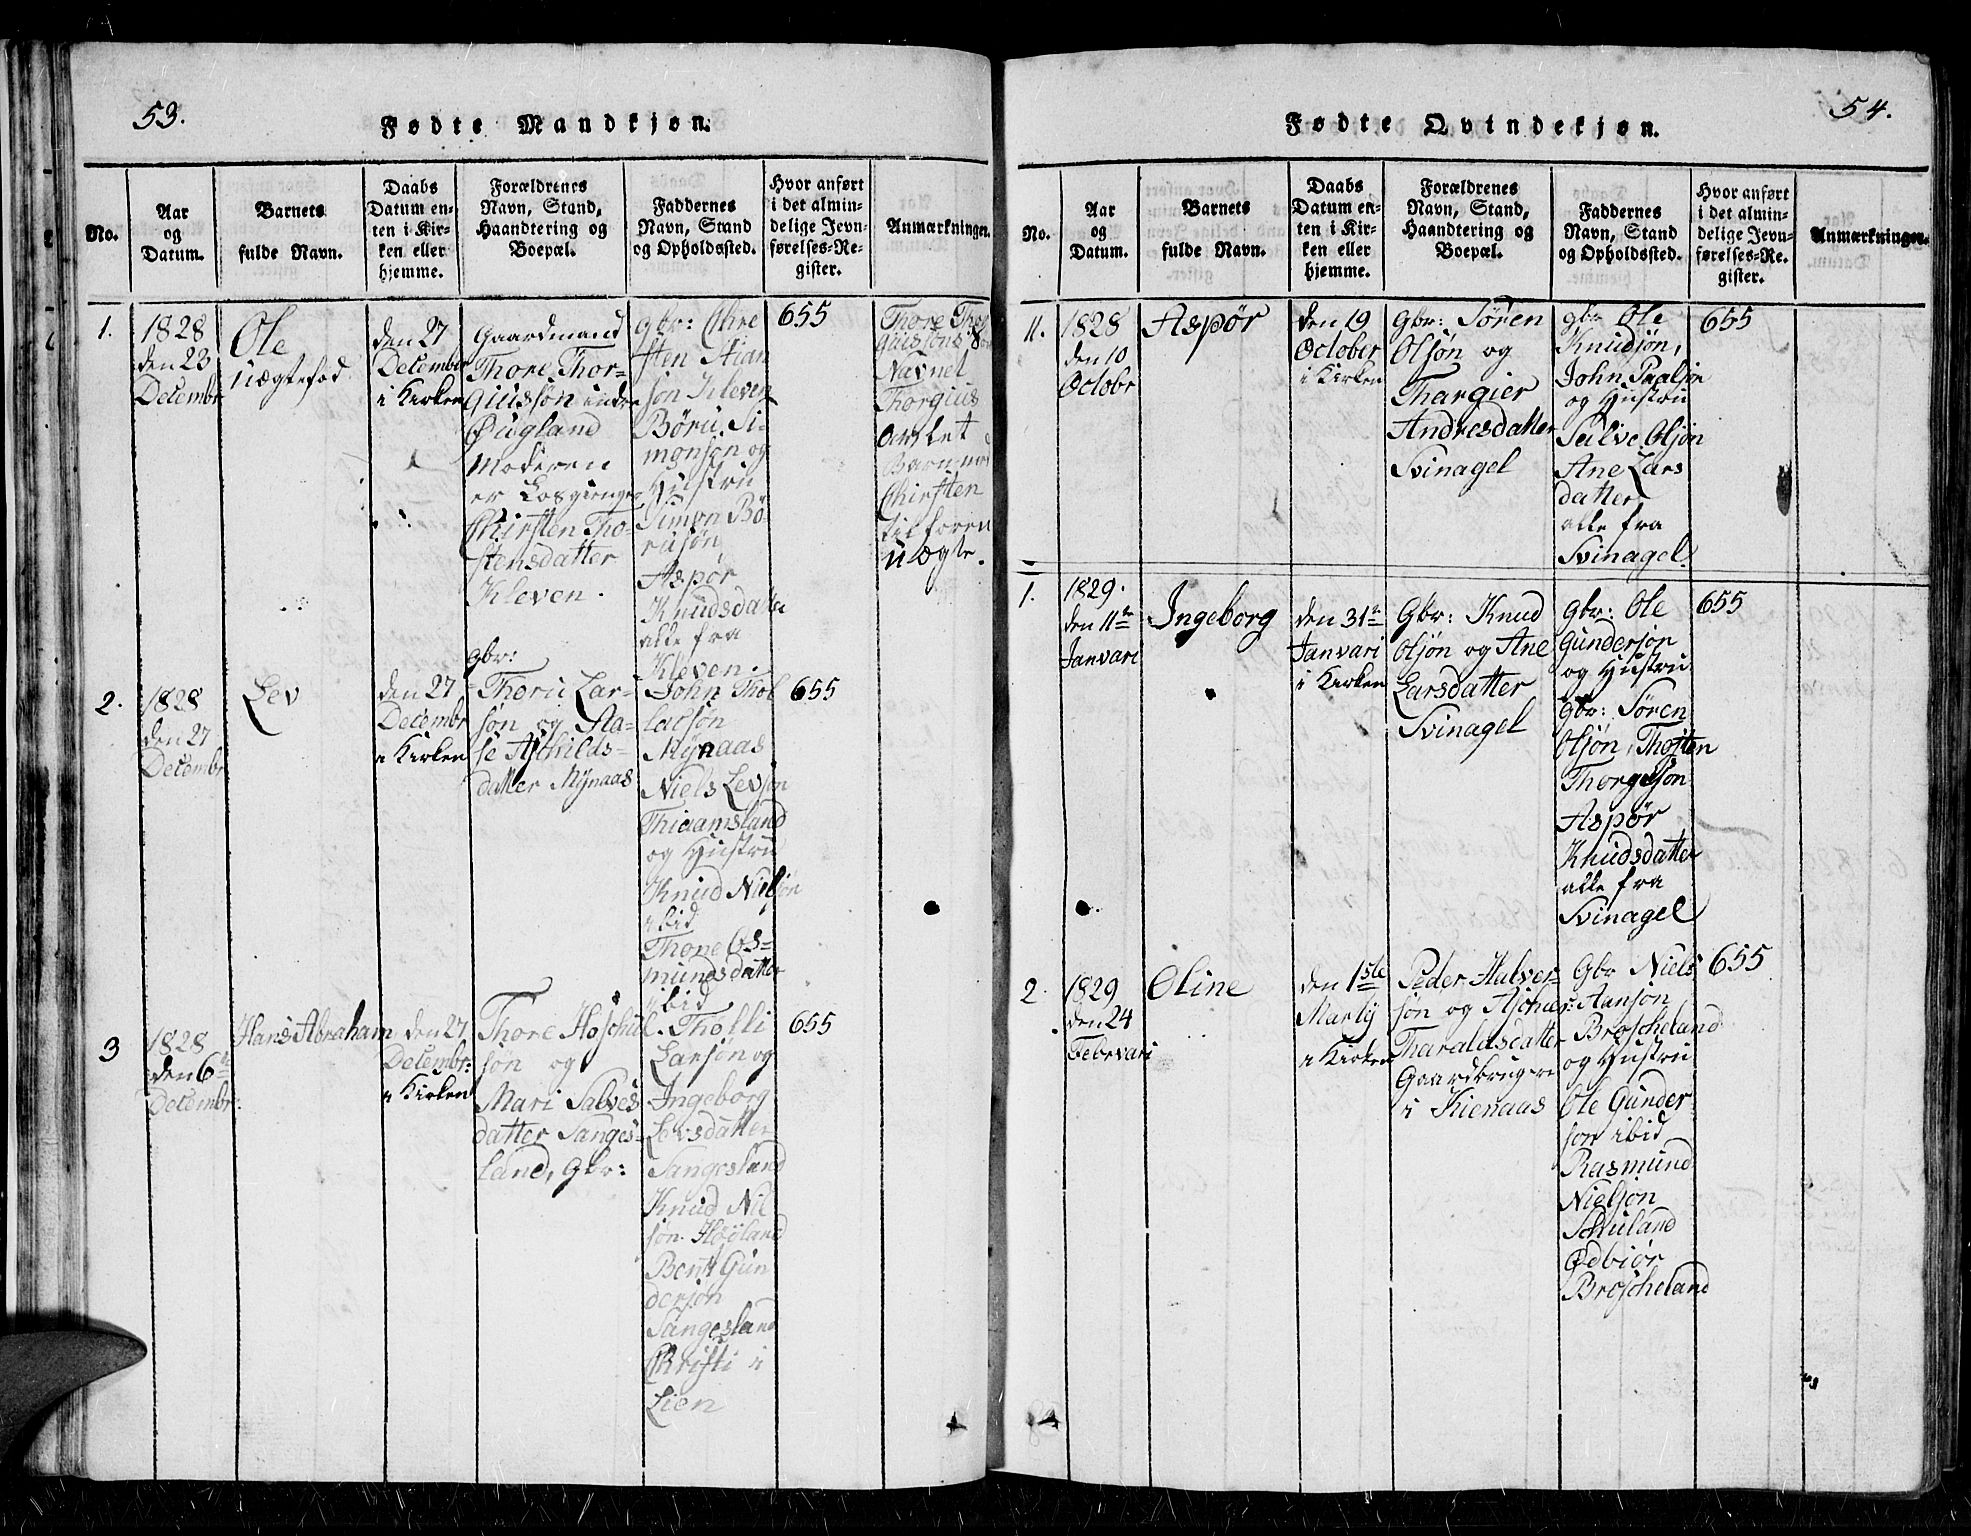 53.
Fødte Mandkjøn.
No.
Aar
og
Datum.
Barnets
fulde Navn.
Daabs
Datum en-
ten i Kir-
ken eller
hjemme.
Forældrenes
Navn, Stand,
Haandtering og
Boepæl.
Faddernes
Navn, Stand
og Opholdssted.
Hvor anført
i det almin-
delige Jevn-
førelses-Re-
gister.
Anmærkninger.
1.
1828
den 23
Decembr
Ole
uægtefød
den 27
December
i Kirken
Gaardmand
Thore Thor-
giusøn indre
Øugland
Moderen
er Løsgienger
Chirsten Tho-
stensdatter
Kleven.
gbr: Chre
sten Stian
søn Kleven
Børu Si-
monsøn og
Hustru
Simon Bø-
rusøn
Aspør
Knudsdatter
alle fra
Kleven.
655
Navnet
Thorgius
Barn
Chirsten
tilforen
uægte.
2.
1828
den 27
Decembr
Lev
den 27
Decembr
i Kirken
gbr:
Thoru Lar-
søn og Aa-
se Aschilds-
datter Mÿnaas
John Thol
lacsøn
Mÿnaas
Niels Levsøn
Thiaamsland
og Hustru
Knud Nielsøn
ibid
Thone Os-
mundsdatter
ibid
655
3
1828
den 6te
Decembr:
Hans Abraham
den 27
Decembr:
i Kirken
Thore Høschul
søn og
Mari Salves
datter Sanges-
land, Gbr:
Tholli
Larsøn og
Ingeborg
Levsdatter
Sangesland
Knud Nil
søn Høÿland
Bent Gun
dersøn
Sangesland
Christi i
Lien
655
54.
Fødte Qvindekjøn.
No.
Aar
og
Datum.
Barnets
fulde Navn.
Daabs
Datum en-
ten i Kir-
ken eller
hjemme.
Forældrenes
Navn, Stand,
Haandtering og
Boepæl.
Faddernes
Navn, Stand
og Opholdssted.
Hvor anført
i det almin-
delige Jevn-
førelses-Re-
gister.
Anmærkninger.
11.
1828
den 10
Octobr
Aspør
den 19
October
i Kirken
gbr: Søren
Olsøn og
Thargier
Andresdatter
Svinagel
gbr Ole
Knudsøn,
John Paalsøn
og Hustru
Salve Olsøn
Ane Lars
datter
alle fra
Svinagel.
655
1.
1829.
den 11te
Janvari
Ingeborg
den 31te
Janvari
i Kirken
Gbr: Knud
Olsøn og Ane
Larsdatter
Svinagel
gbr: Ole
Gundersøn
og Hustru
gbr: Søren
Olsøn, Thosten
Thorgusøn
Aspør
Knudsdatter
alle fra
Svinagel
655
2
1829
den 24
Febrvari
Oline
den 1ste
Martÿ
i Kirken
Peder Halver-
søn og Aschier
Tharaldsdatter
Gaardbrugere
i Kienaas
Gbr Niels
Aansøn
Broscheland
og Hustru
Ole Gunder
søn ibid
Rasmund
Nielsøn
Schuland
Ødbiør
Broscheland
655